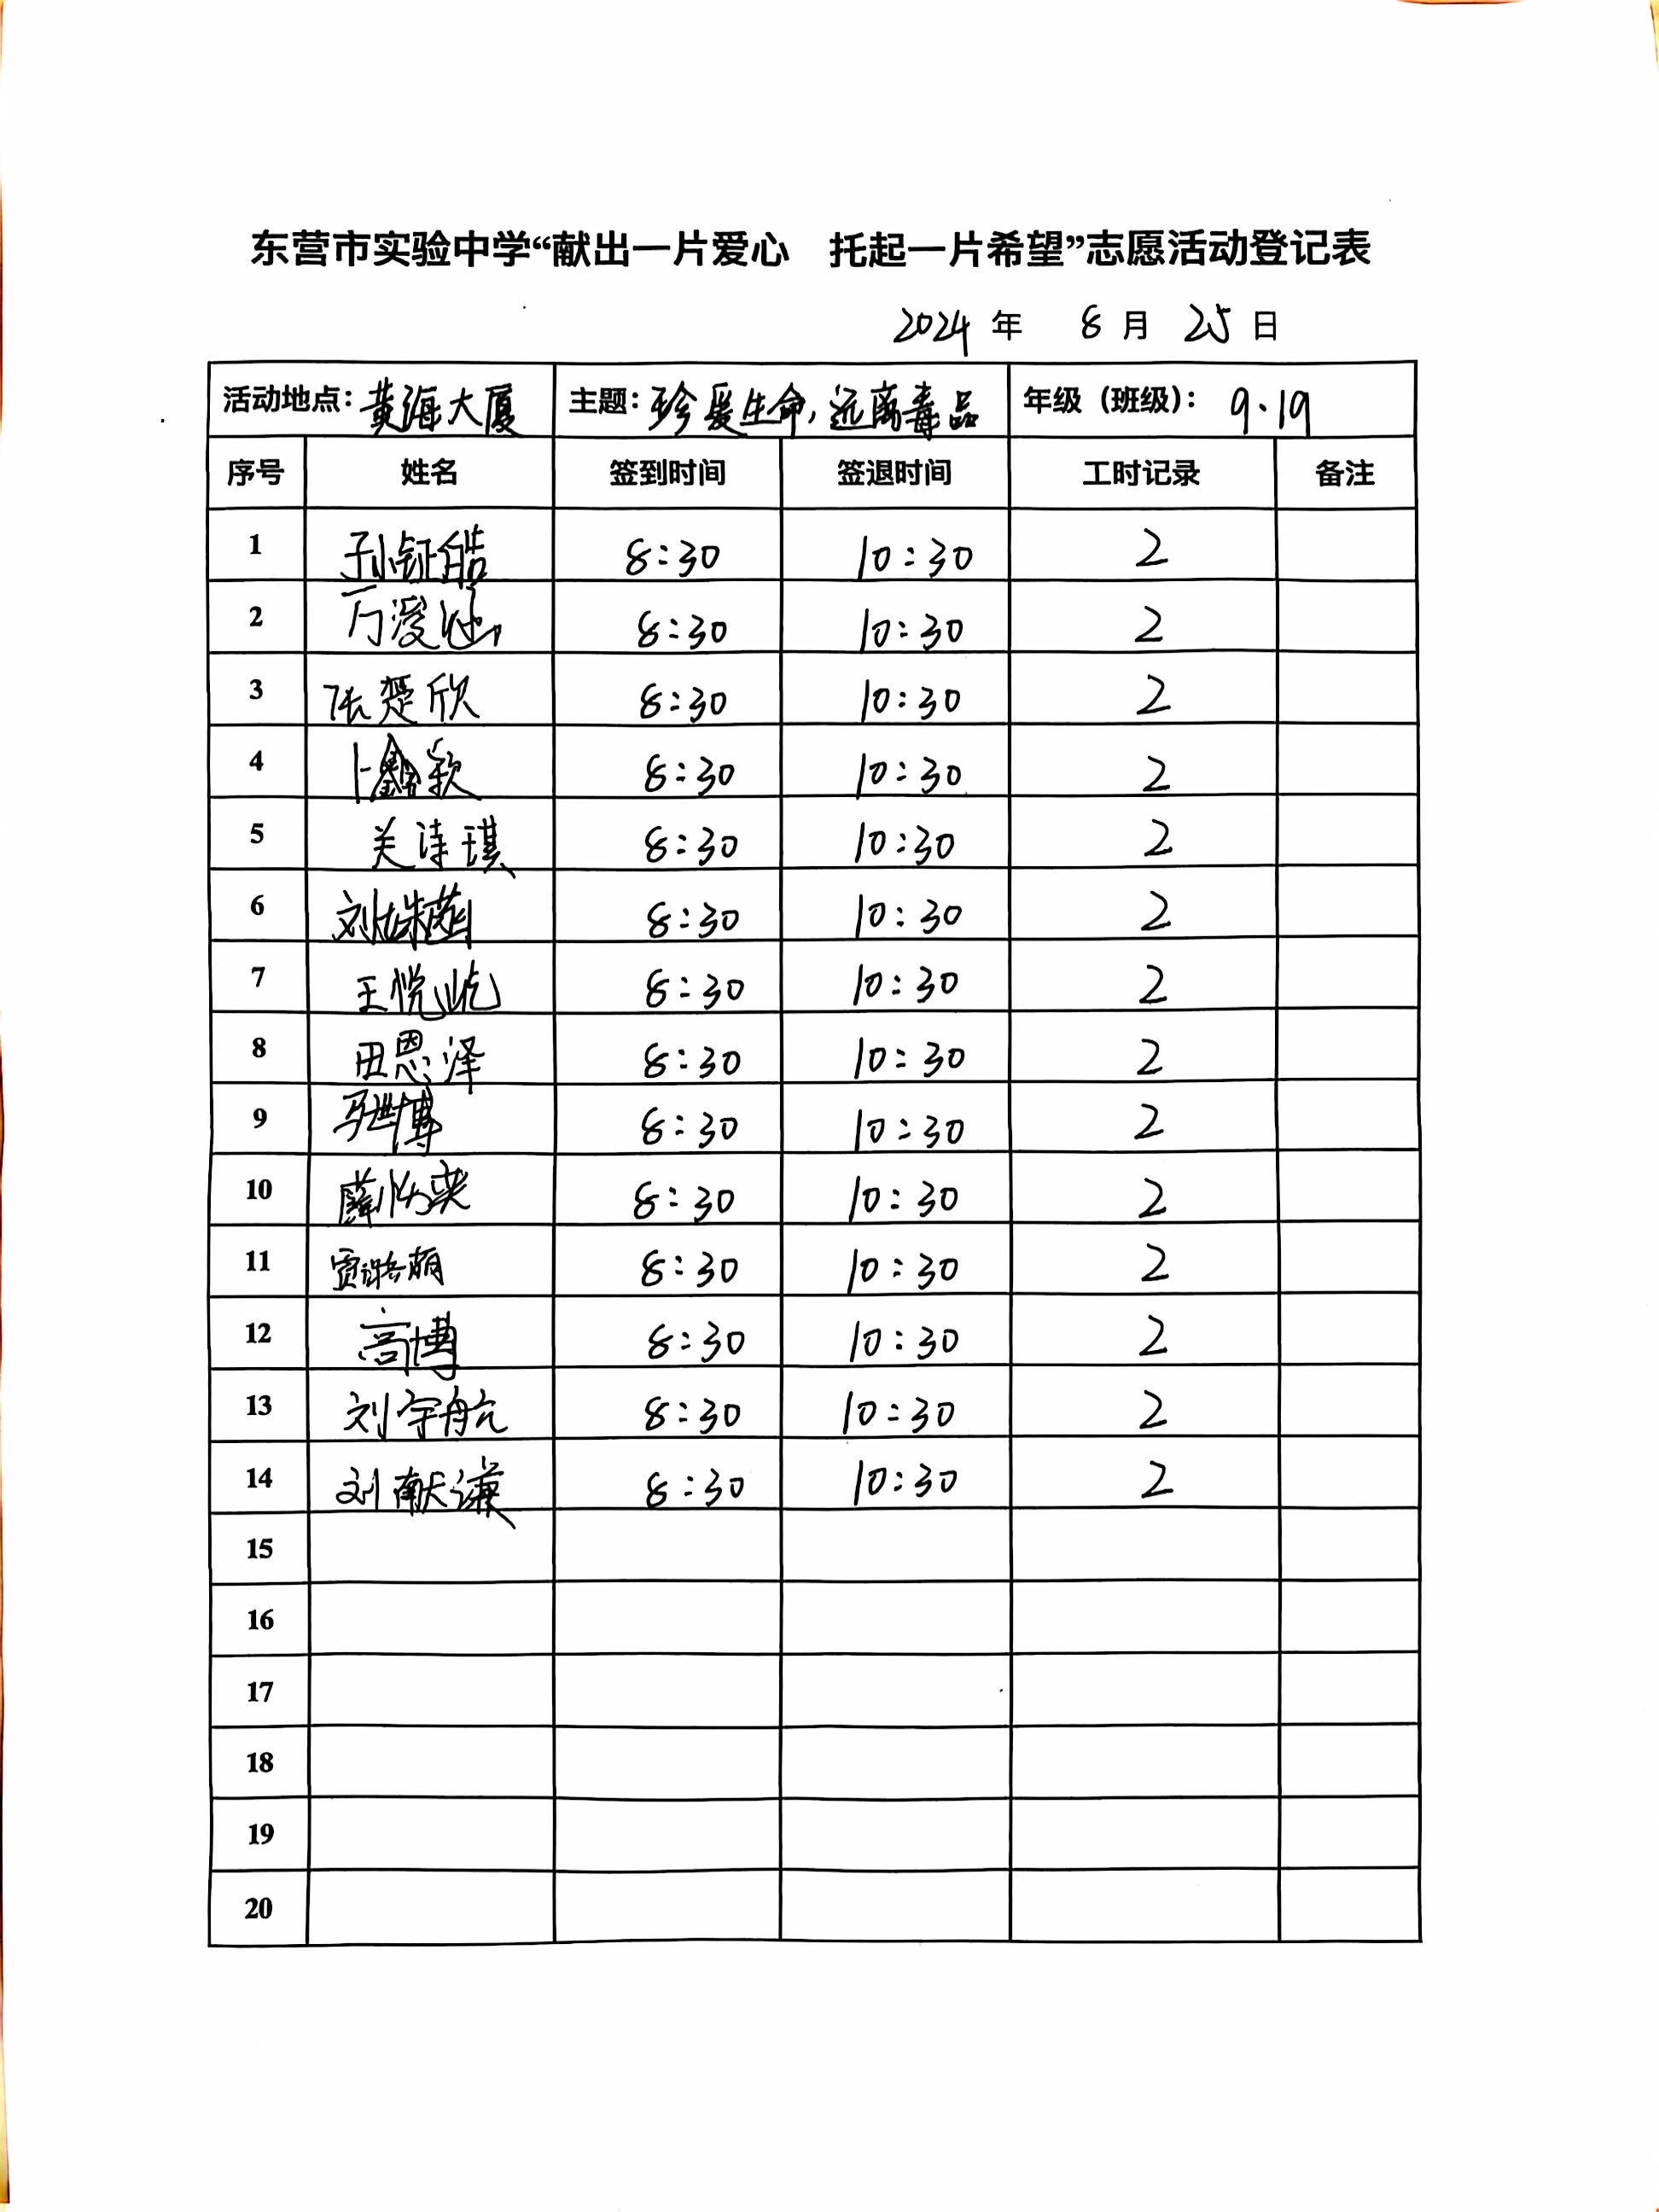 东营市实验中学“献出一片爱心 托起一片希望”志愿活动登记表
2024 年 8 月 25 日
活动地点：黄海大厦 主题：珍爱生命，远离毒品 年级（班级）：9.19
序号 姓名 签到时间 签退时间 工时记录 备注
1 孙钲皓 8:30 10:30 2
2 8:30 10:30 2
3 张楚欣 8:30 10:30 2
4 卜鑫颖 8:30 10:30 2
5 关诗琪 8:30 10:30 2
6 刘姝菡 8:30 10:30 2
7 王悦屹 8:30 10:30 2
8 田恩泽 8:30 10:30 2
9 马世博 8:30 10:30 2
10 薛 8:30 10:30 2
11 贾 萌 8:30 10:30 2
12 高博 8:30 10:30 2
13 刘宇航 8:30 10:30 2
14 刘献谦 8:30 10:30 2
15
16
17
18
19
20